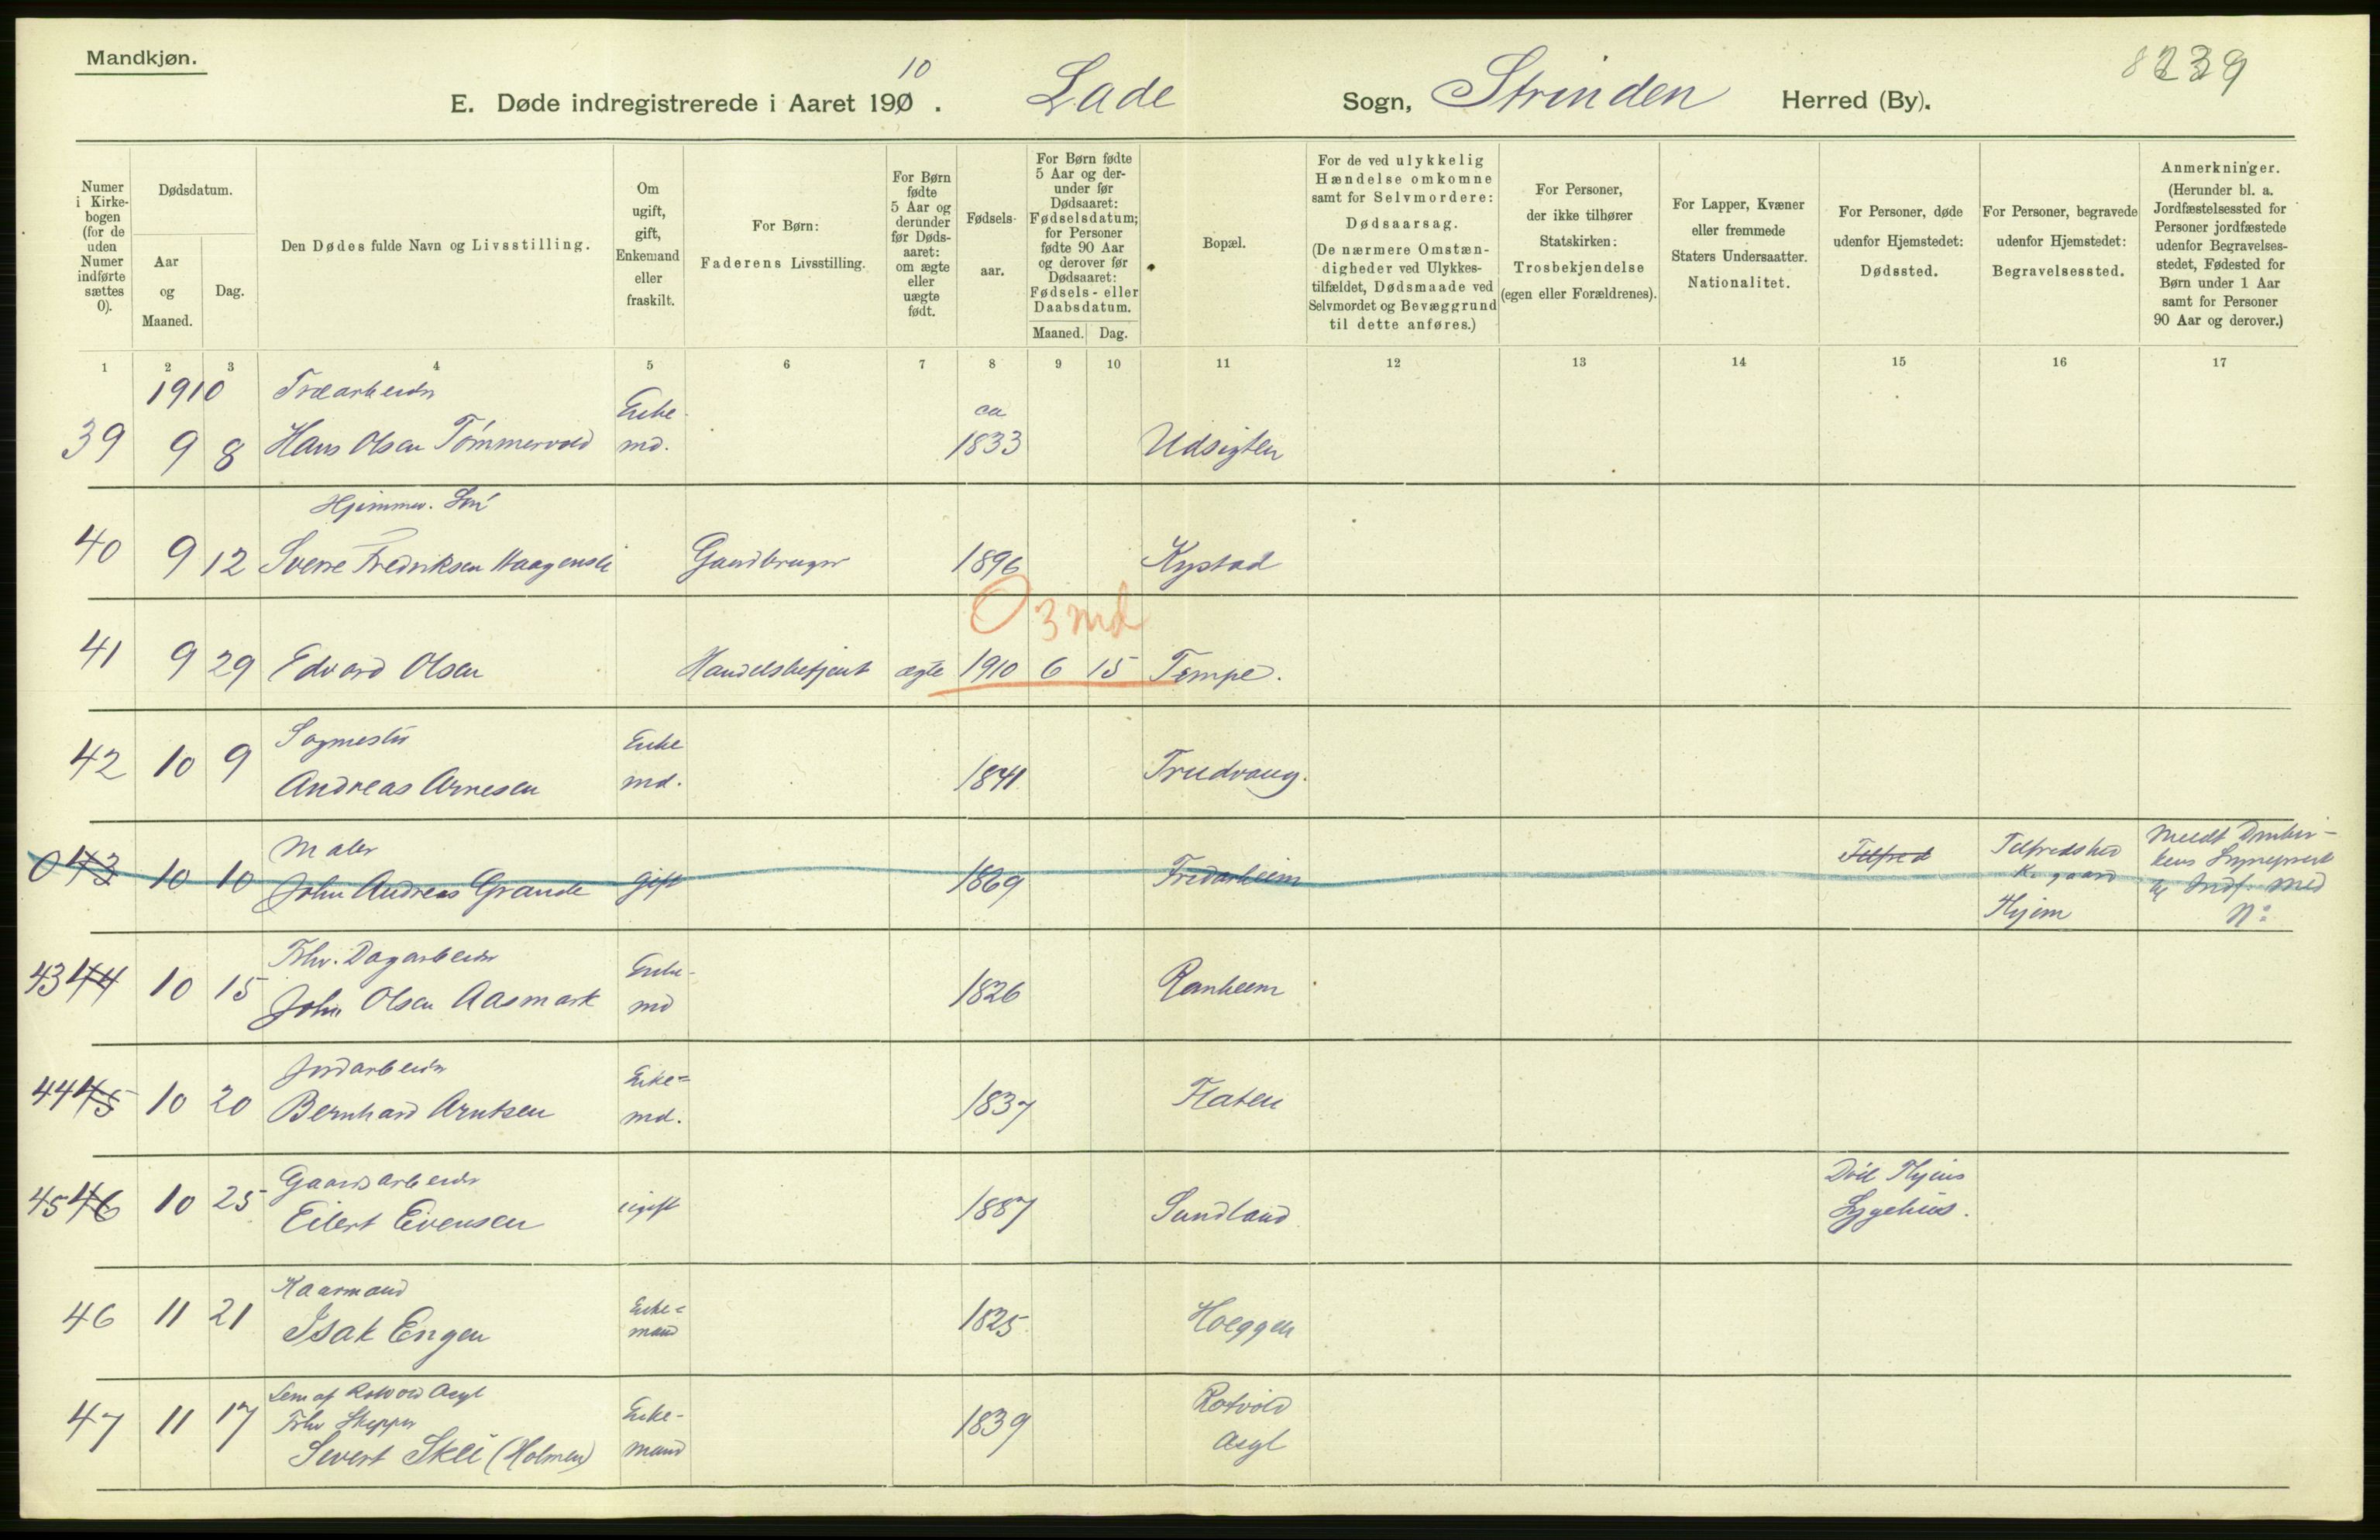 Mandkjøn.
8239
10
E. Døde indregistrerede i Aaret 190 . Lade Sogn, Strinden Herred (By).
Numer i Kirkebogen (for de uden Numer indførte sættes 0).
Dødsdatum.
Aar og Maaned.
Dag.
Den Dødes fulde Navn og Livsstilling.
Om ugift, gift, Enkemand eller fraskilt.
For Børn:
Faderens Livsstilling.
For Børn fødte 5 Aar og derunder før Dødsaaret: om ægte eller uægte født.
Fødselsaar.
For Børn fødte 5 Aar og derunder før Dødsaaret: Fødselsdatum; for Personer fødte 90 Aar og derover før Dødsaaret: Fødsels- eller Daabsdatum.
Maaned. Dag.
Bopæl.
For de ved ulykkelig Hændelse omkomne samt for Selvmordere: Dødsaarsag. (De nærmere Omstændigheder ved Ulykkestilfældet, Dødsmaade ved Selvmordet og Bevæggrund til dette anføres.)
For Personer, der ikke tilhører Statskirken: Trosbekjendelse (egen eller Forældrenes).
For Lapper, Kvæner eller fremmede Staters Undersaatter. Nationalitet.
For Personer, døde udenfor Hjemstedet: Dødssted.
For Personer, begravede udenfor Hjemstedet: Begravelsessted.
Anmerkninger. (Herunder bl. a. Jordfæstelsessted for Personer jordfæstede udenfor Begravelsesstedet, Fødested for Børn under 1 Aar samt for Personer 90 Aar og derover.)
1 2 3 4 5 6 7 8 9 10 11 12 13 14 15 16 17
1910 Træarbeider Enke- ca
39 9 8 Hans Olsen Tømmervold md. 1833 Udsigten
Hjemmev. Søn
40 9 12 Sverre Fredriksen Haagensli Gaardbruger 1896 Kystad
O 3 md
41 9 29 Edvard Olsen Handelsbetjent ægte 1910 6 15 Tempe.
Sagmester Enke
42 10 9 Andreas Arnesen md. 1841 Trudvang.
Maler
0 43 10 10 John Andreas Grande gift 1869 Fredarheim Tilfred Tilfredshed K.gaard Hjem
Meldt
Indf. med
No
Fhv. Dagarbeider Enke-
43 44 10 15 John Olsen Aasmark md 1826 Ranheim
Jordarbeider Enke=
44 45 10 20 Bernhard Arntsen md. 1837 Flaten
Gaardsarbeider
45 46 10 25 Eilert Evensen ugift 1887 Sundland
Sygehus.
Kaarmand Enke=
46 11 21 Isak Engen mand 1825 Hoeggen
Lem af Rotvold Asyl
Fhv Skipper Enke- Rotvold
47 11 17 Sivert Sklei (Holmen) mand 1839 Asyl